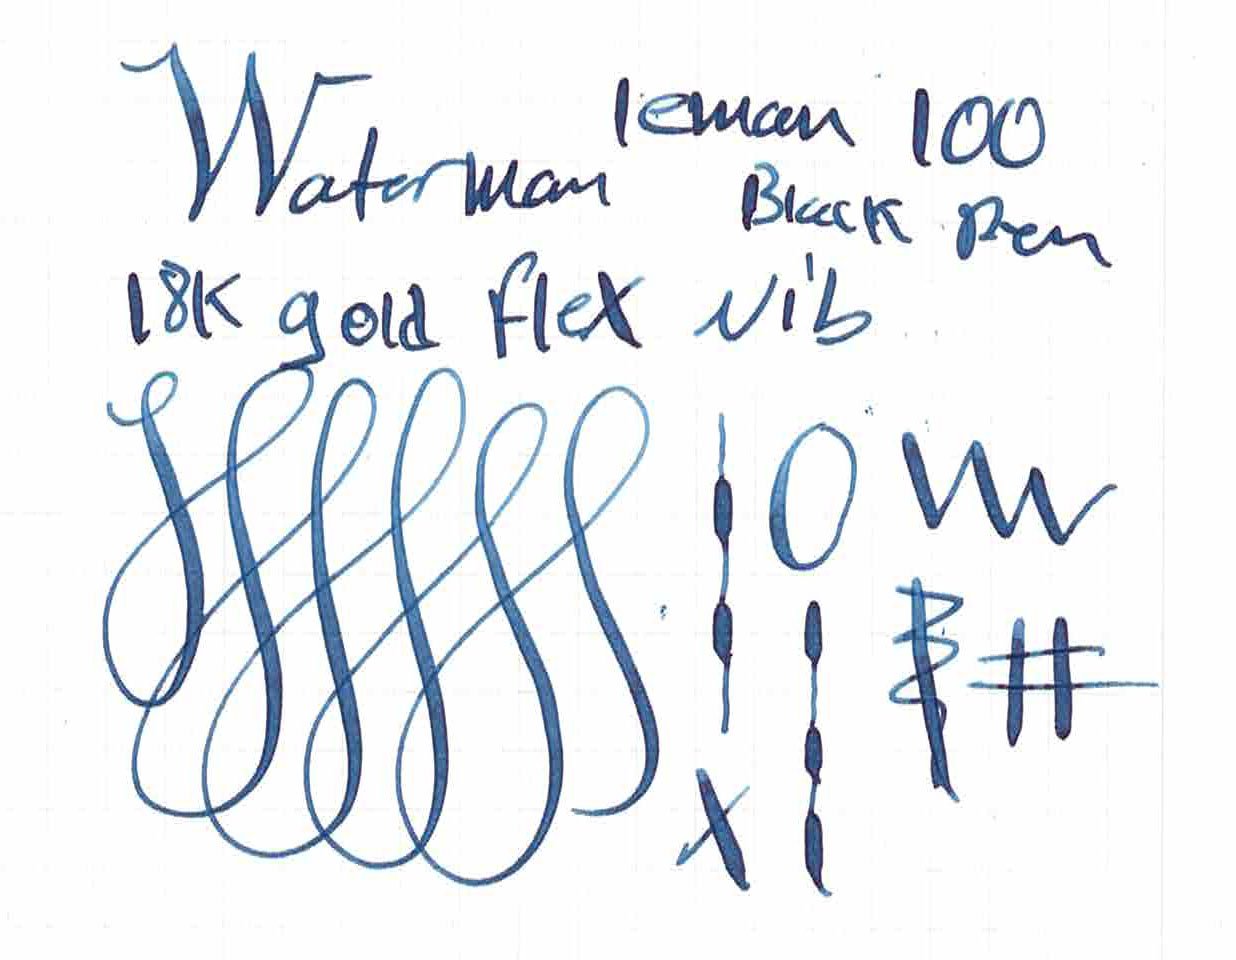 Waterman leman 100
Black Pen
18K gold flex nib